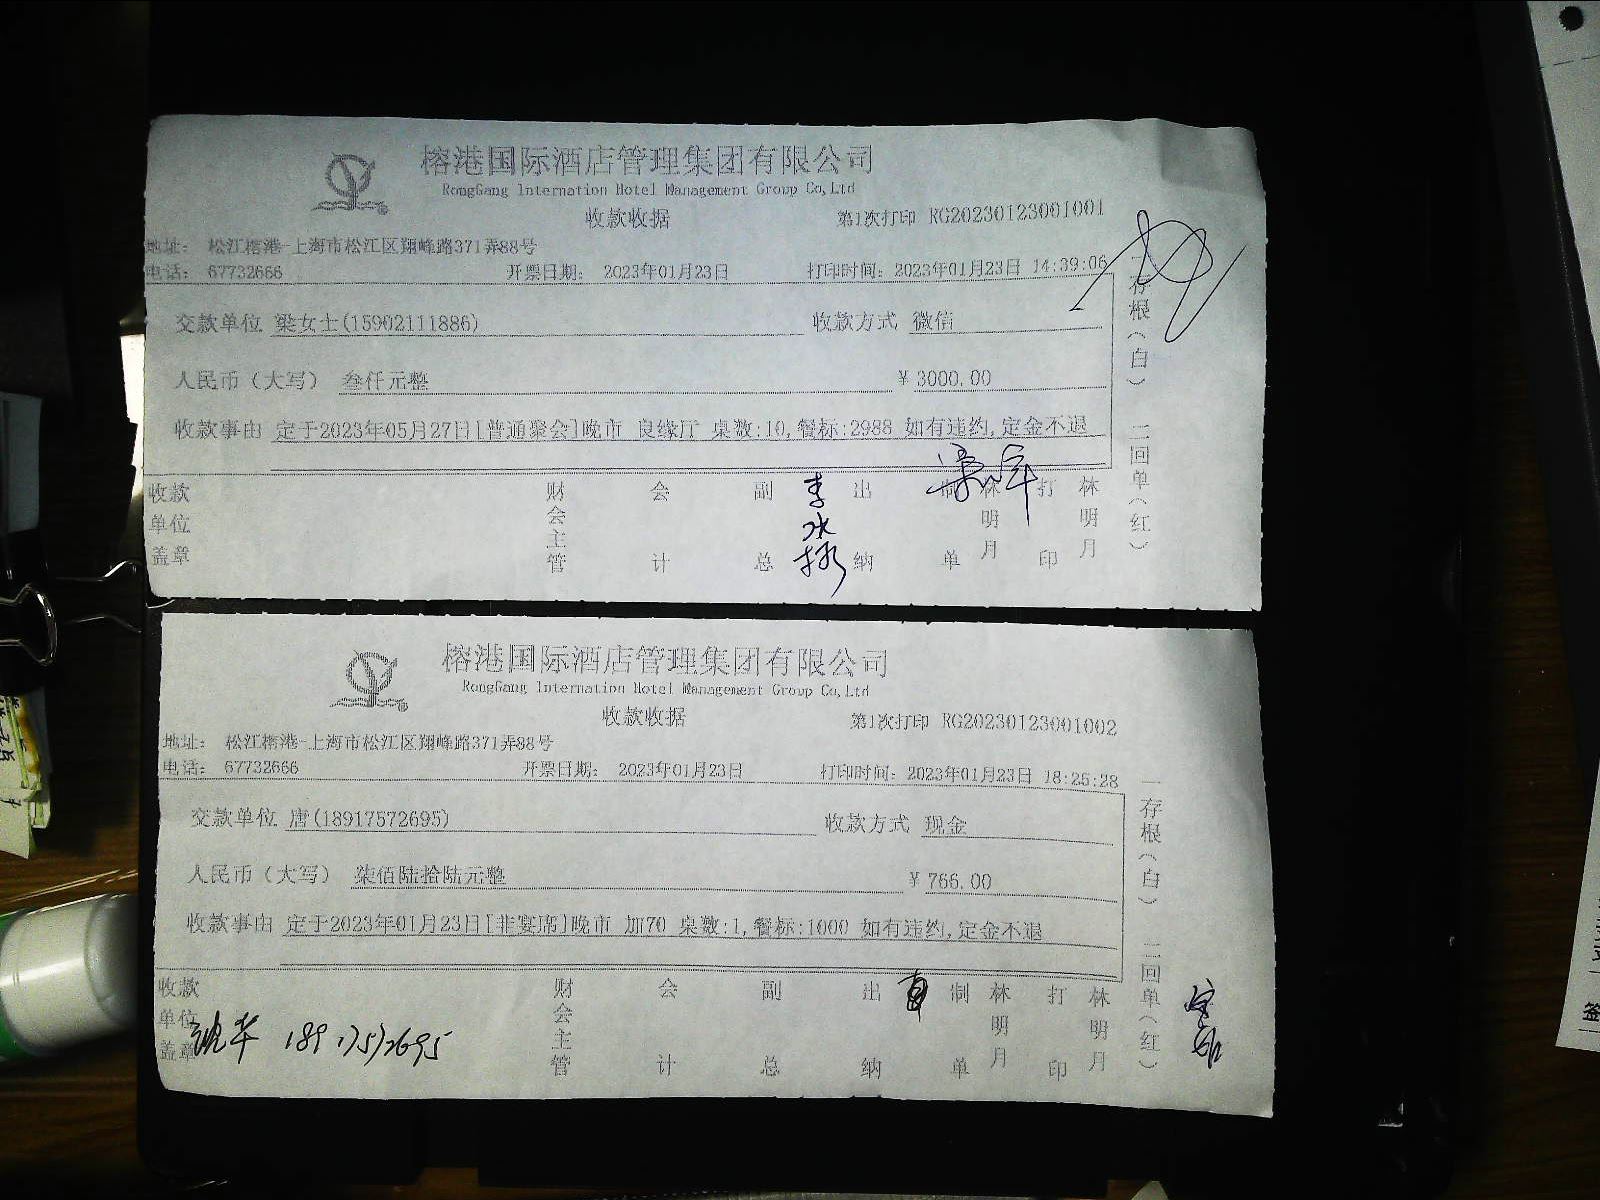 榕港国际酒店管理集团有限公司
RongGang Internation Hotel Management Group Co,Ltd
收款收据 第1次打印 RG20230123001001
地址： 松江榕港-上海市松江区翔峰路371弄88号
电话： 67732666 开票日期： 2023年01月23日 打印时间：2023年01月23日 14:39:06
交款单位 梁女士(15902111886) 收款方式 微信
人民币（大写） 叁仟元整 ￥3000.00
收款事由 定于2023年05月27日[普通聚会]晚市 良缘厅 桌数:10,餐标:2988 如有违约,定金不退
一存根（白） 二回单（红）
收款单位盖章 财会主管 会计 副总 李水 出纳 制单 林明月 打印 林明月
榕港国际酒店管理集团有限公司
RongGang Internation Hotel Management Group Co,Ltd
收款收据 第1次打印 RG20230123001002
地址： 松江榕港-上海市松江区翔峰路371弄88号
电话： 67732666 开票日期： 2023年01月23日 打印时间：2023年01月23日 18:25:28
交款单位 唐(18917572695) 收款方式 现金
人民币（大写） 柒佰陆拾陆元整 ￥766.00
收款事由 定于2023年01月23日[非宴席]晚市 加70 桌数:1,餐标:1000 如有违约,定金不退
一存根（白） 二回单（红）
收款单位盖章 财会主管 会计 副总 出纳 制单 林明月 打印 林明月
18917572695